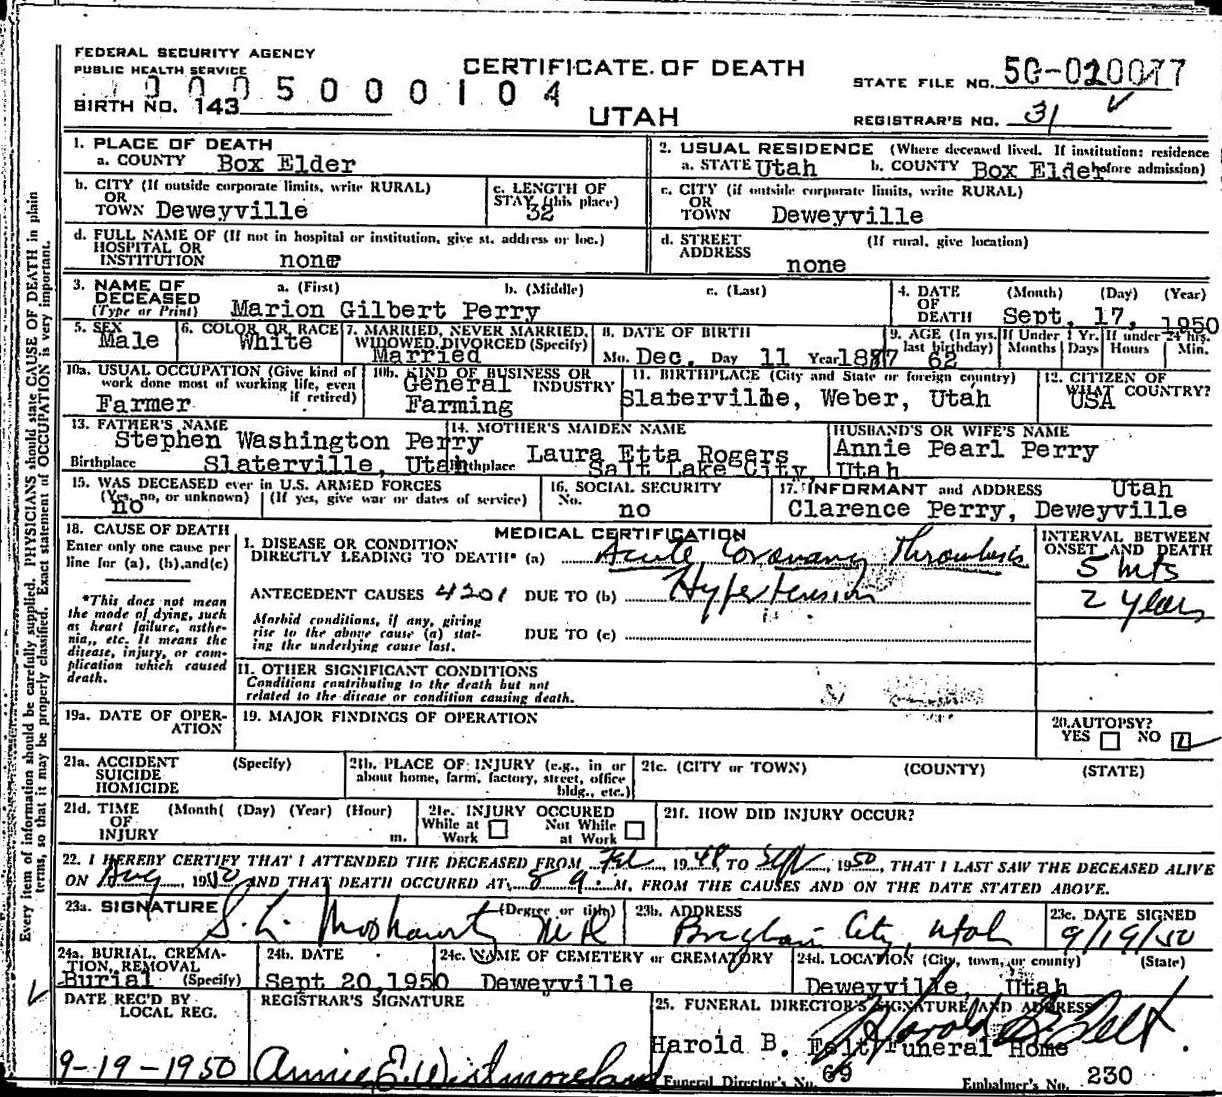 FEDERAL SECURITY AGENCY
PUBLIC HEALTH SERVICE
CERTIFICATE OF DEATH
STATE FILE NO. 50-020077
0005000104
BIRTH NO. 143
UTAH
REGISTRAR'S NO. 31
1. PLACE OF DEATH
a. COUNTY Box Elder
2. USUAL RESIDENCE (Where deceased lived. If institution: residence before admission)
a. STATE Utah b. COUNTY Box Elder
b. CITY (If outside corporate limits, write RURAL)
OR
TOWN Deweyville
c. LENGTH OF
STAY (this place)
32
c. CITY (if outside corporate limits, write RURAL)
OR
TOWN Deweyville
d. FULL NAME OF (If not in hospital or institution, give st. address or loc.)
HOSPITAL OR
INSTITUTION none
d. STREET (If rural, give location)
ADDRESS
none
3. NAME OF DECEASED
(Type or Print)
a. (First) b. (Middle) c. (Last)
Marion Gilbert Perry
4. DATE OF DEATH (Month) (Day) (Year)
Sept. 17, 1950
5. SEX
Male
6. COLOR OR RACE
White
7. MARRIED, NEVER MARRIED, WIDOWED, DIVORCED (Specify)
Married
8. DATE OF BIRTH
Mo. Dec. Day 11 Year 1887
9. AGE (In yrs. last birthday)
62
If Under 1 Yr.
Months Days
If under 24 hrs.
Hours Min.
10a. USUAL OCCUPATION (Give kind of work done most of working life, even if retired)
Farmer
10b. KIND OF BUSINESS OR INDUSTRY
General
Farming
11. BIRTHPLACE (City and State or foreign country)
Slaterville, Weber, Utah
12. CITIZEN OF WHAT COUNTRY?
USA
13. FATHER'S NAME
Stephen Washington Perry
Birthplace Slaterville, Utah
14. MOTHER'S MAIDEN NAME
Laura Etta Rogers
Birthplace Salt Lake City, Utah
HUSBAND'S OR WIFE'S NAME
Annie Pearl Perry
15. WAS DECEASED ever in U.S. ARMED FORCES
(Yes, no, or unknown) (If yes, give war or dates of service)
no
16. SOCIAL SECURITY
No.
no
17. INFORMANT and ADDRESS Utah
Clarence Perry, Deweyville
18. CAUSE OF DEATH
Enter only one cause per line for (a), (b), and (c)
*This does not mean the mode of dying, such as heart failure, asthenia, etc. It means the disease, injury, or complication which caused death.
MEDICAL CERTIFICATION
1. DISEASE OR CONDITION
DIRECTLY LEADING TO DEATH* (a) Acute Coronary Thrombosis
INTERVAL BETWEEN ONSET AND DEATH
5 mts
ANTECEDENT CAUSES 4201 DUE TO (b) Hypertension
2 years
Morbid conditions, if any, giving rise to the above cause (a) stating the underlying cause last.
DUE TO (c)
11. OTHER SIGNIFICANT CONDITIONS
Conditions contributing to the death but not
related to the disease or condition causing death.
19a. DATE OF OPERATION
19. MAJOR FINDINGS OF OPERATION
20. AUTOPSY?
YES NO
21a. ACCIDENT (Specify)
SUICIDE
HOMICIDE
21b. PLACE OF INJURY (e.g., in or about home, farm, factory, street, office bldg., etc.)
21c. (CITY or TOWN) (COUNTY) (STATE)
21d. TIME OF INJURY (Month( (Day) (Year) (Hour)
m.
21e. INJURY OCCURED
While at Work Not While at Work
21f. HOW DID INJURY OCCUR?
22. I HEREBY CERTIFY THAT I ATTENDED THE DECEASED FROM Feb 1948, TO Sept 1950, THAT I LAST SAW THE DECEASED ALIVE
ON Aug, 1950 AND THAT DEATH OCCURED AT 8 9. M, FROM THE CAUSES AND ON THE DATE STATED ABOVE.
23a. SIGNATURE (Degree or title)
S. L. MD
23b. ADDRESS
Brigham City, Utah
23c. DATE SIGNED
9/19/50
24a. BURIAL, CREMATION, REMOVAL
Burial (Specify)
24b. DATE
Sept 20, 1950
24c. NAME OF CEMETERY or CREMATORY
Deweyville
24d. LOCATION (City, town, or county) (State)
Deweyville, Utah
DATE REC'D BY LOCAL REG.
9-19-1950
REGISTRAR'S SIGNATURE
Annie E. Westmoreland
25. FUNERAL DIRECTOR'S SIGNATURE AND ADDRESS
Harold B. Felt
Harold B. Felt Funeral Home
Funeral Director's No. 69 Embalmer's No. 230
Every item of information should be carefully supplied. PHYSICIANS should state CAUSE OF DEATH in plain
terms, so that it may be properly classified. Exact statement of OCCUPATION is very important.